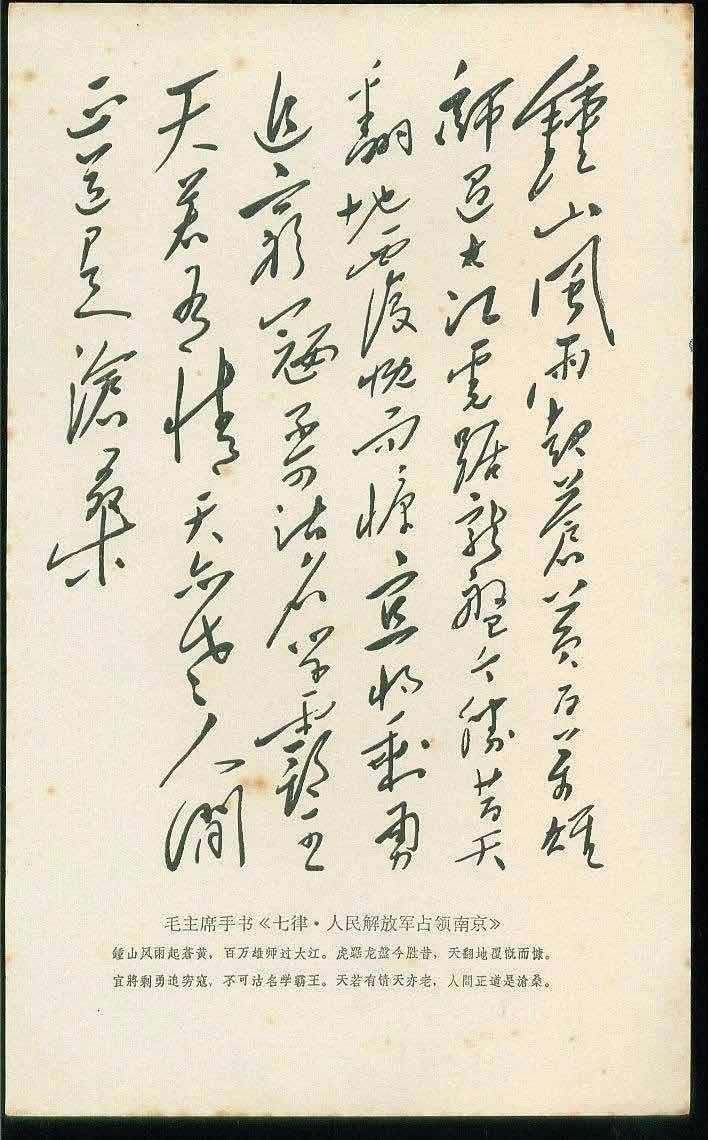 鍾山風雨起蒼黄百万雄
師过大江虎踞龍盤今勝昔天
翻地覆慨而慷宜将剩勇
追窮寇不可沽名学霸王
天若有情天亦老人間
正道是滄桑
毛主席手书《七律·人民解放军占领南京》
鍾山风雨起苍黄，百万雄师过大江。虎踞龙盘今胜昔，天翻地覆慨而慷。
宜將剩勇追穷寇，不可沽名学霸王。天若有情天亦老，人間正道是滄桑。